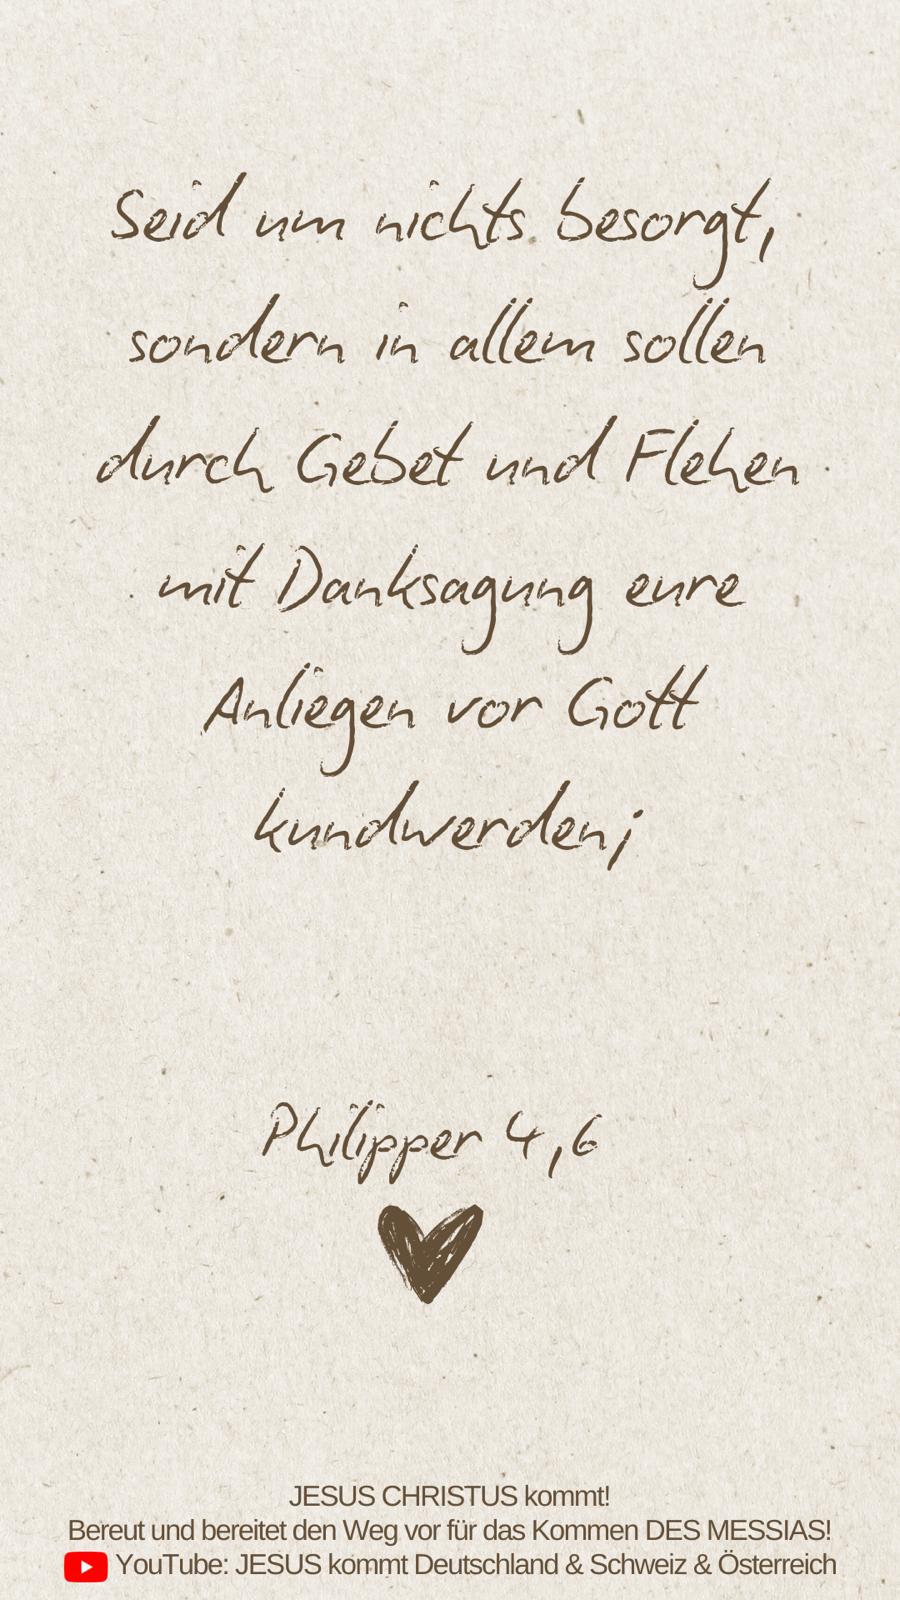 Seid um nichts besorgt,
sondern in allem sollen
durch Gebet und Flehen
mit Danksagung eure
Anliegen vor Gott
kundwerden;
Philipper 4,6
JESUS CHRISTUS kommt!
Bereut und bereitet den Weg vor für das Kommen DES MESSIAS!
YouTube: JESUS kommt Deutschland & Schweiz & Österreich